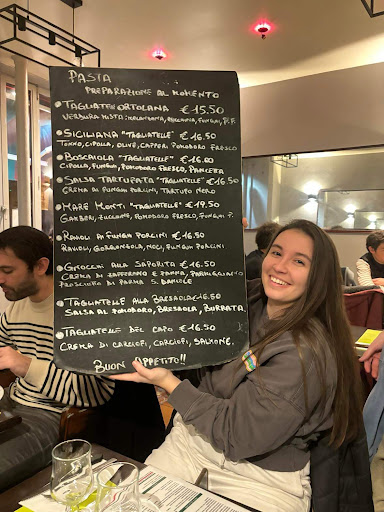 PASTA
PREPARAZIONE AL MOMENTO
TAGLIATE ORTOLANA € 15.50
VERDURA MISTA: MELANZANA, ZUCCHINA, FUNGHI, P.F.
SICILIANA "TAGLIATELLE" € 16.50
TONNO, CIPOLLA, OLIVE, CAPPERI POMODORO FRESCO
BOSCAIOLA "TAGLIATELLE" € 16.00
CIPOLLA, FUNGHI, POMODORO FRESCO, PANCETA
SALSA TARTUFATA "TAGLIATELLE" € 16.50
CREMA DI FUNGHI PORCINI, TARTUFO NERO
MARE MONTI "TAGLIATELLE" € 19.50
GAMBERI, ZUCCHINE, POMODORO FRESCO, FUNGHI P.
RAVIOLI AI FUNGHI PORCINI € 16.50
RAVIOLI, GORGONZOLA, NOCI, FUNGHI PORCINI
GNOCCHI ALLA SAPORITA € 16.50
CREMA DI ZAFFERANO E PANNA, PARMIGGIANO
PROSCIUTTO DI PARMA S. DANIELE
TAGLIATELLE ALLA BRESAOLA € 16.50
SALSA AL POMODORO, BRESAOLA, BURRATA.
TAGLIATELLE DEL CAPO € 16.50
CREMA DI CARCIOFI, CARCIOFI, SALMONE.
BUON APPETITO!!